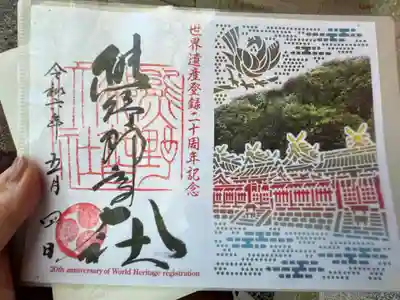 世界遺産登録二十周年記念
熊野那智大社
令和六年 五月 四日
20th anniversary of World Heritage registration